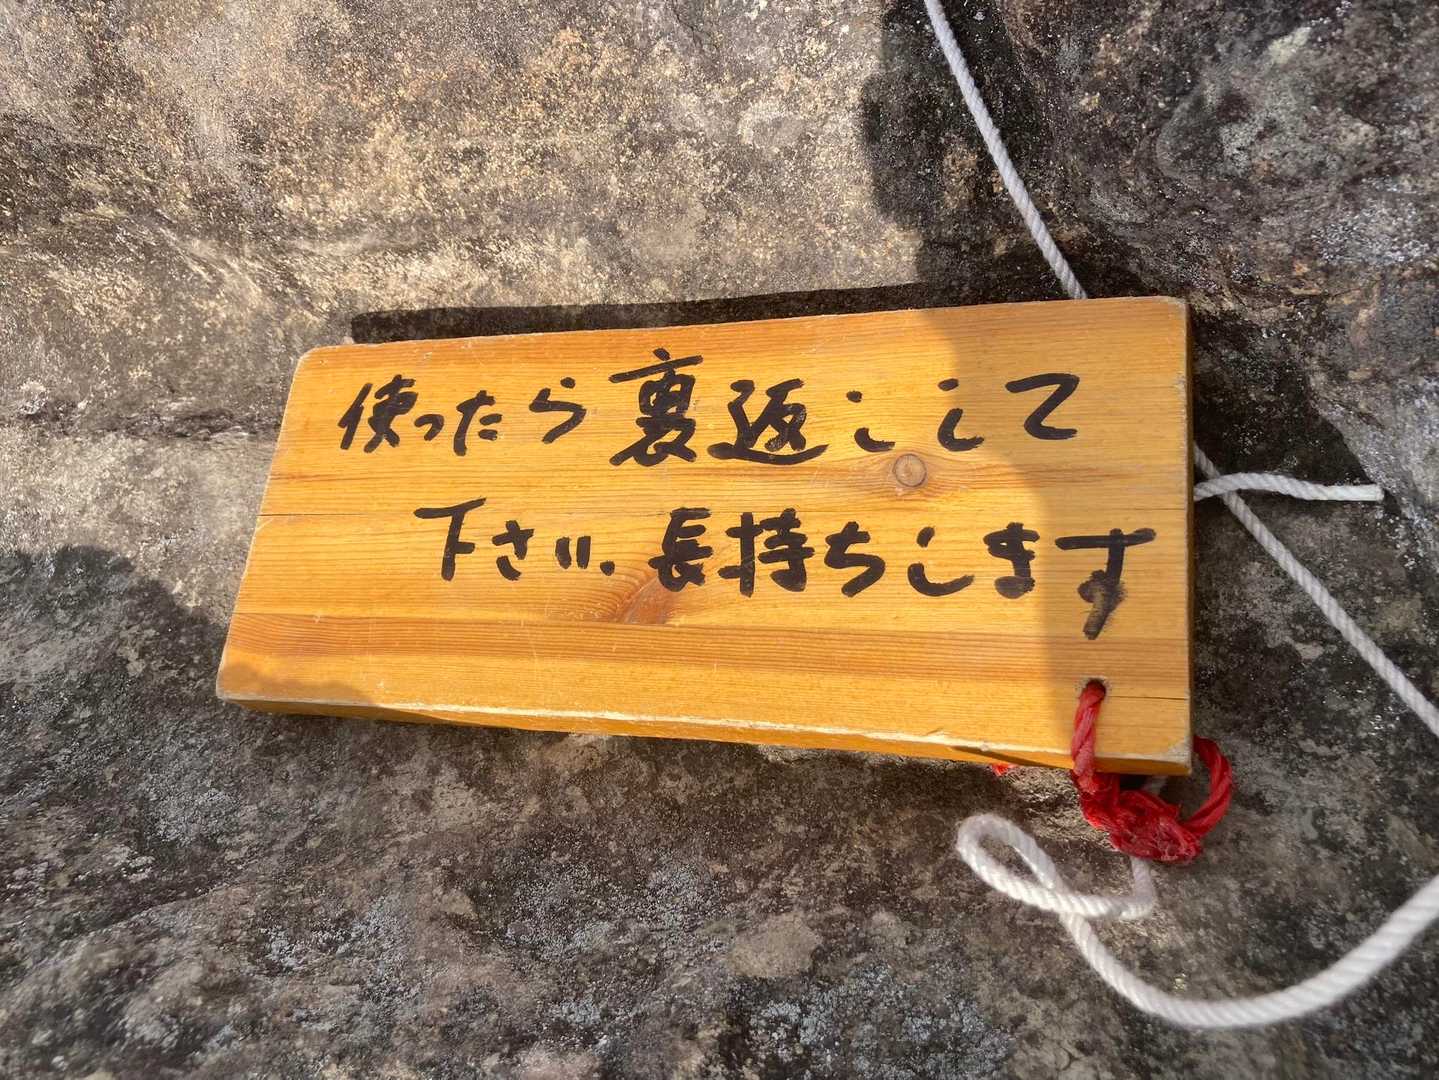 使ったら裏返ししして
下さい.長持ちします